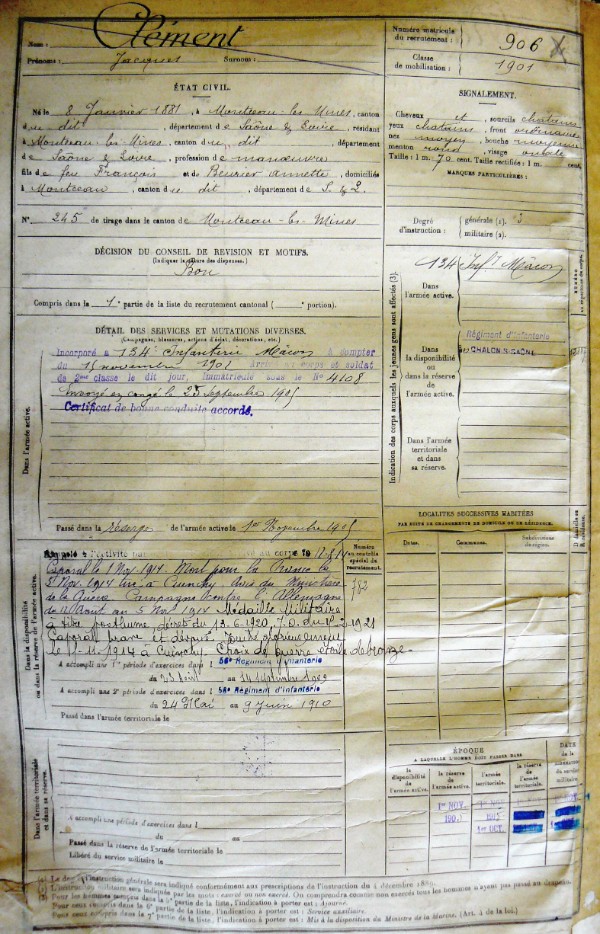 Nom : Clément
Prénoms : Jacques Surnoms :
Numéro matricule du recrutement : 906
Classe de mobilisation : 1901
ÉTAT CIVIL.
Né le 8 Janvier 1881, à Montceau-les-Mines, canton
du dit, département de Saône & Loire, résidant
à Montceau-les-Mines, canton du dit, département
de Saône & Loire, profession de manœuvre
fils de feu François et de Annette, domiciliés
à Montceau, canton du dit, département de S. & L.
N° 245 de tirage dans le canton de Montceau-les-Mines
SIGNALEMENT.
Cheveux et sourcils châtains
yeux châtains, front ordinaire
nez moyen, bouche moyenne
menton rond, visage ovale
Taille : 1 m. 70 cent. Taille rectifiée : 1 m. cent.
MARQUES PARTICULIÈRES :
Degré d'instruction : générale (1). 3
militaire (2).
DÉCISION DU CONSEIL DE REVISION ET MOTIFS.
(Indiquer la nature des dispenses.)
Bon
Compris dans la 1e partie de la liste du recrutement cantonal ( portion).
DÉTAIL DES SERVICES ET MUTATIONS DIVERSES.
(Campagnes, blessures, actions d'éclat, décorations, etc.)
Incorporé à 134e Infanterie Mâcon à compter
du 15 novembre 190 au corps et soldat
de 2ème classe le dit jour, immatriculé sous le N° 4108
Envoyé en congé le 23 septembre 1905
Certificat de bonne conduite accordé.
Passé dans la réserve de l'armée active le 1er Novembre 1905
Dans l'armée active.
Indication des corps auxquels les jeunes gens sont affectés (3).
Dans l'armée active.
134 Inf. Mâcon
Dans la disponibilité ou dans la réserve de l'armée active.
Régiment d'Infanterie
CHALON S/SAÔNE
Dans l'armée territoriale et dans sa réserve.
LOCALITÉS SUCCESSIVES HABITÉES
PAR SUITE DE CHANGEMENTS DE DOMICILE OU DE RÉSIDENCE.
Dates. Communes. Subdivisions de région.
Dans la disponibilité ou dans la réserve de l'armée active.
Rappelé à l'activité au corps le 12.8.14
Caporal le 1 Nov. 1914 Mort pour la France le
5 Nov. 1914 tué à Cuinchy Avis du Ministère
de la Guerre Campagne contre l'Allemagne
du 12 Août au 5 Nov. 1914 Médaille Militaire
à titre posthume, décret du 13.6.1920, J.O. du 1921
Caporal brave et dévoué
le 11-1914 à Cuinchy. Croix de guerre étoile de bronze
Numéro au contrôle spécial du recrutement.
182
A accompli une 1re période d'exercices dans l 56e Régiment d'Infanterie
du 23 août au 14 septembre
A accompli une 2e période d'exercices dans l 56e Régiment d'Infanterie
du 24 Mai au 9 Juin 1910
Passé dans l'armée territoriale le
ÉPOQUE
A LAQUELLE L'HOMME DOIT PASSER DANS
la disponibilité de l'armée active. la réserve de l'armée active. l'armée territoriale. la réserve de l'armée territoriale.
DATE de la libération du service militaire.
1er NOV.
1er OCT.
Dans l'armée territoriale et dans sa réserve.
A accompli une période d'exercices dans l
du au
Passé dans la réserve de l'armée territoriale le
Libéré du service militaire le
(1) Le degré d'instruction générale sera indiqué conformément aux prescriptions de l'instruction du 4 décembre 1889.
(2) L'instruction militaire sera indiquée par les mots exercé ou non exercé.
6e partie de la liste, l'indication à porter est : Service auxiliaire.
7e partie de la liste, l'indication à porter est : Mis à la disposition du Ministre de la Marine. (Art. 4 de la loi.)